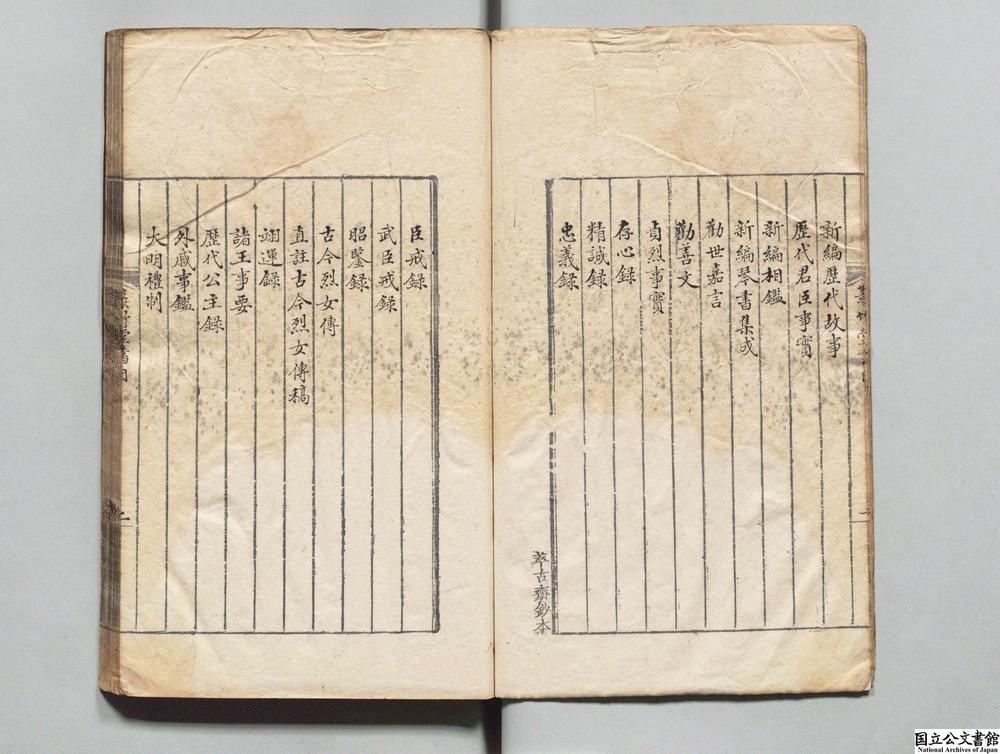 新編歷代故事
歷代君臣事實
新編相鑑
新編琴書集成
勸世嘉言
勸善文
貞烈事實
存心録
精誠録
忠義録
萃古齋鈔本
臣戒録
武臣戒録
昭鑒録
古今烈女傳
直註古今烈女傳稿
翊運録
諸王事要
歷代公主録
外戚事鑑
大明禮制
國立公文書館
National Archives of Japan